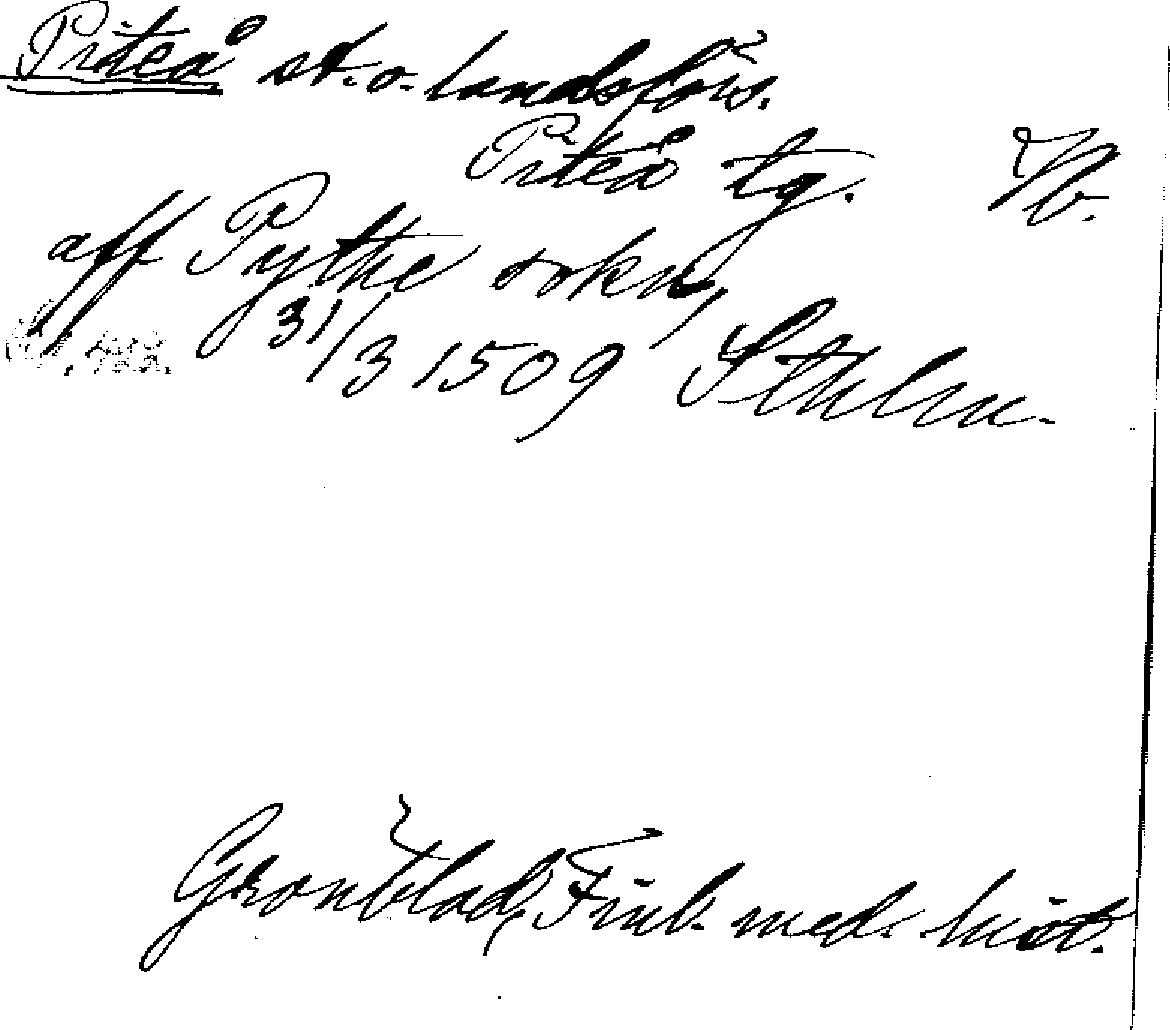 Piteå st. o. landsförs.
Piteå tg. Vb.
aff Pythe sokn,
31/3 1509 Sthlm.
Grönblad, Finl. med. hist.